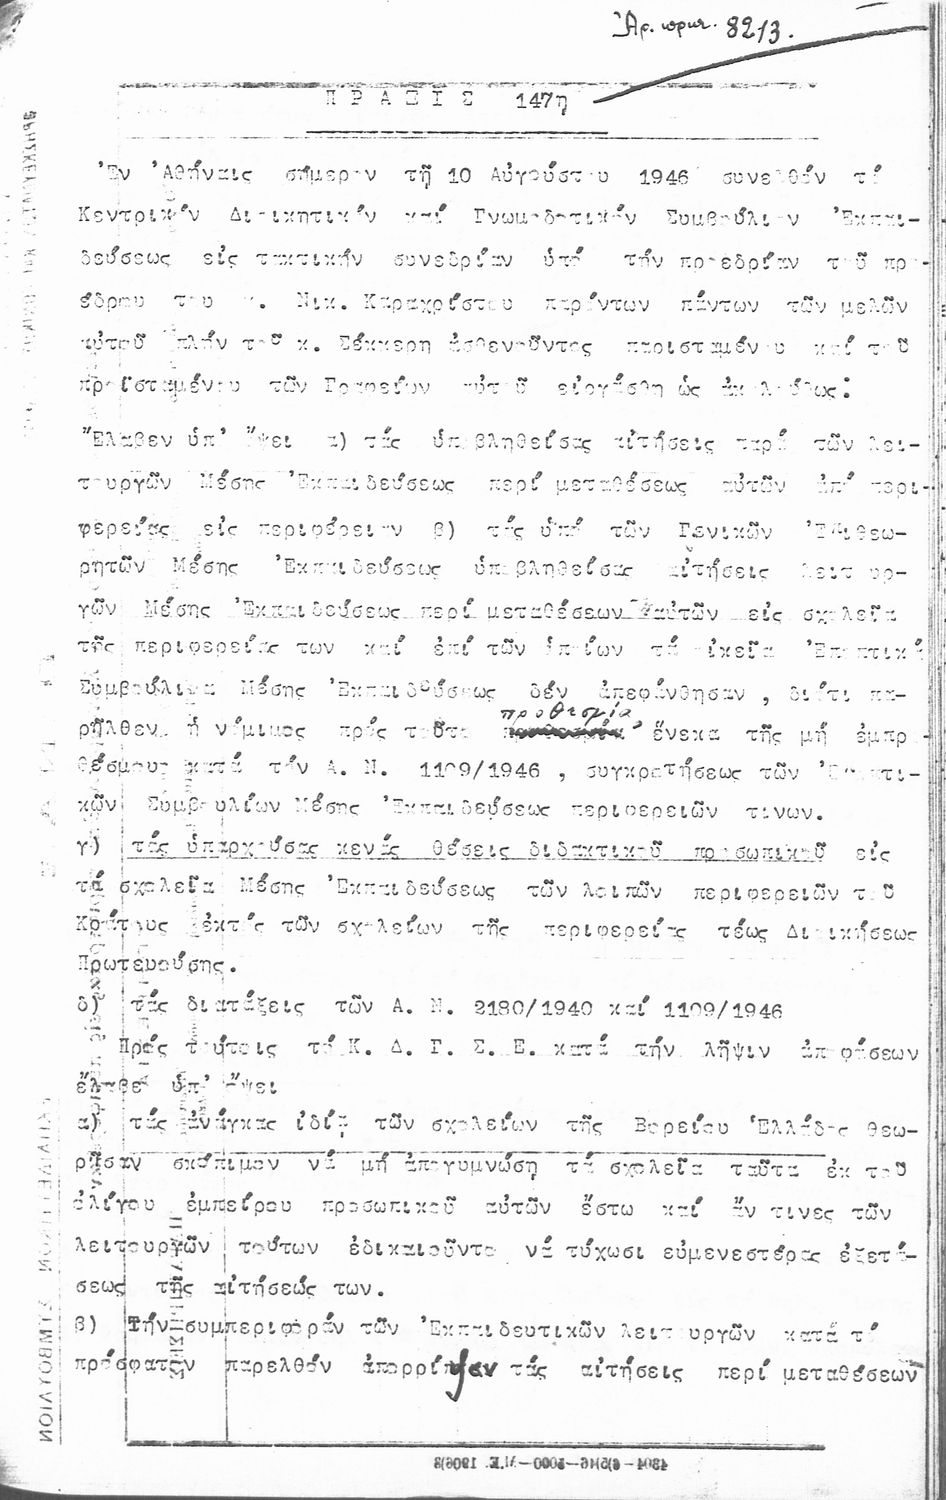 Ἀρ. πρωτ. 8213.
ΠΡΑΞΙΣ 147η
Ἐν Ἀθήναις σήμερον τῇ 10 Αὐγούστου 1946 συνελθόν τό
Κεντρικόν Διοικητικόν καί Γνωμοδοτικόν Συμβούλιον Ἐκπαι-
δεύσεως εἰς τακτικήν συνεδρίαν ὑπό τήν προεδρίαν τοῦ προ-
έδρου του κ. Νικ. Καραχρίστου παρόντων πάντων τῶν μελῶν
αὐτοῦ πλήν τοῦ κ. Σέκκερη ἀσθενοῦντος παρισταμένου καί τοῦ
προϊσταμένου τῶν Γραφείων αὐτοῦ εἰργάσθη ὡς ἀκολούθως:
Ἔλαβεν ὑπ' ὄψει α) τάς ὑποβληθείσας αἰτήσεις παρά τῶν λει-
τουργῶν Μέσης Ἐκπαιδεύσεως περί μεταθέσεως αὐτῶν ἀπό περι-
φερείας εἰς περιφέρειαν β) τάς ὑπό τῶν Γενικῶν Ἐπιθεω-
ρητῶν Μέσης Ἐκπαιδεύσεως ὑποβληθείσας αἰτήσεις λειτουρ-
γῶν Μέσης Ἐκπαιδεύσεως περί μεταθέσεων αὐτῶν εἰς σχολεῖα
τῆς περιφερείας των καί ἐπί τῶν ὁποίων τά οἰκεῖα Ἐποπτικά
Συμβούλια Μέσης Ἐκπαιδεύσεως δέν ἀπεφάνθησαν, διότι πα-
ρῆλθεν ἡ νόμιμος πρός τοῦτο προθεσμία, ἕνεκα τῆς μή ἐμπρο-
θέσμου κατά τόν Α. Ν. 1109/1946, συγκροτήσεως τῶν Ἐποπτι-
κῶν Συμβουλίων Μέσης Ἐκπαιδεύσεως περιφερειῶν τινων.
γ) τάς ὑπαρχούσας κενάς θέσεις διδακτικοῦ προσωπικοῦ εἰς
τά σχολεῖα Μέσης Ἐκπαιδεύσεως τῶν λοιπῶν περιφερειῶν τοῦ
Κράτους ἐκτός τῶν σχολείων τῆς περιφερείας τέως Διοικήσεως
Πρωτευούσης.
δ) τάς διατάξεις τῶν Α. Ν. 2180/1940 καί 1109/1946
Πρός τούτοις τό Κ. Δ. Γ. Σ. Ε. κατά τήν λῆψιν ἀποφάσεων
ἔλαβε ὑπ' ὄψει
α) τάς ἀνάγκας ἰδίᾳ τῶν σχολείων τῆς Βορείου Ἑλλάδος θεω-
ρῆσαν σκόπιμον νά μή ἀπογυμνώσῃ τά σχολεῖα ταῦτα ἐκ τοῦ
ὀλίγου ἐμπείρου προσωπικοῦ αὐτῶν ἔστω καί ἄν τινες τῶν
λειτουργῶν τούτων ἐδικαιοῦντο νά τύχωσι εὐμενεστέρας ἐξετά-
σεως τῆς αἰτήσεώς των.
β) Τήν συμπεριφοράν τῶν Ἐκπαιδευτικῶν λειτουργῶν κατά τό
πρόσφατον παρελθόν ἀπορρίψαν τάς αἰτήσεις περί μεταθέσεων